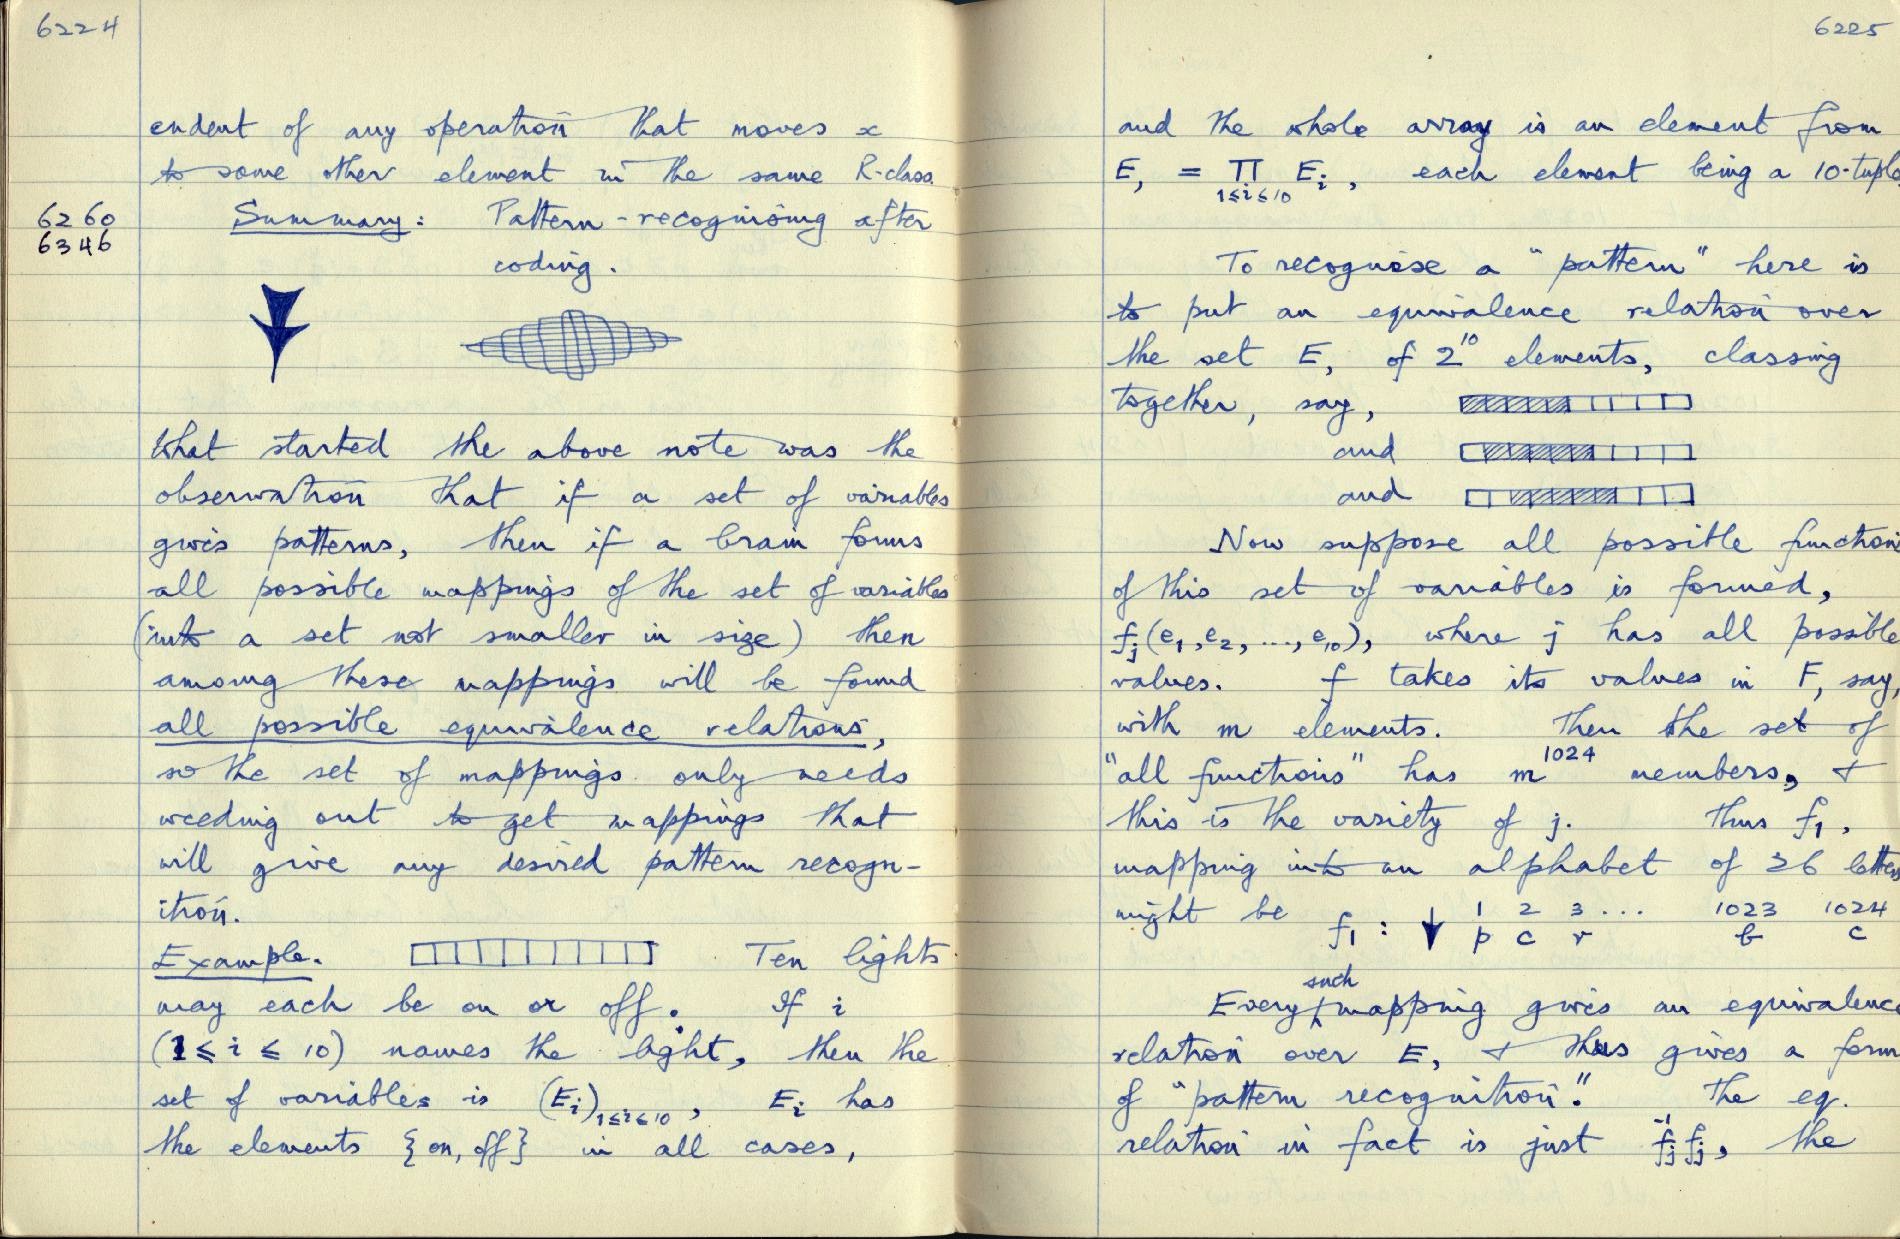 6224
endent of any operation that moves x
to some other element in the same R-class.
6260
6346
Summary: Pattern-recognising after
coding.
What started the above note was the
observation that if a set of variables
gives patterns, then if a brain forms
all possible mappings of the set of variables
(into a set not smaller in size) then
among these mappings will be found
all possible equivalence relations,
so the set of mappings only needs
weeding out to get mappings that
will give any desired pattern recogn-
ition.
Example. Ten lights
may each be on or off. If i
(1 ≤ i ≤ 10) names the light, then the
set of variables is (Ei)1≤i≤10, Ei has
the elements {on, off} in all cases,
6225
and the whole array is an element from
E, = Π Ei, each element being a 10-tuple
1≤i≤10
To recognise a "pattern" here is
to put an equivalence relation over
the set E, of 2¹⁰ elements, classing
together, say,
and
and
Now suppose all possible functions
of this set of variables is formed,
fj(e1, e2, ..., e10), where j has all possible
values. f takes its values in F, say,
with m elements. Then the set of
"all functions" has m¹⁰²⁴ members, &
this is the variety of j. Thus f1,
mapping into an alphabet of 26 letters
might be f1 : ↓ 1 2 3 ... 1023 1024
p c r b c
Every such mapping gives an equivalence
relation over E, & thus gives a form
of "pattern recognition". The eq.
relation in fact is just fj⁻¹fj, the